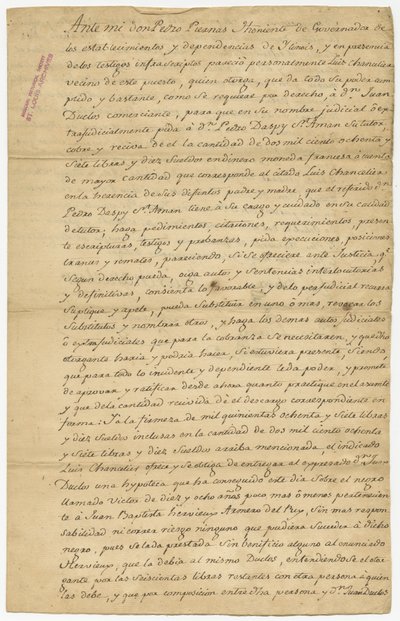 MISSOURI HISTORICAL SOCIETY
ST. LOUIS ARCHIVES
Ante mi don Pedro Piernas Theniente de Governador de
los establecimientos y dependencias de Ylinois, y en presencia
de los testigos infraescriptos pareció personalmente Luis Chancelier
vecino de este puesto, quien otorga, que da todo su poder cum-
plido y bastante, como se requiere por derecho, á dn. Juan
Duclos comerciante, para que en su nombre judicial ó ex-
trajudicialmente pida á dn. Pedro Daspy St. Aman su tutor,
cobre y reciva de el la cantidad de dos mil ciento ochenta y
siete libras y diez sueldos en dinero moneda francesa á cuenta
de mayor cantidad que corresponde al citado Luis Chancelier
en la herencia de sus difuntos padre y madre, que el referido dn.
Pedro Daspy St. Aman tiene á su cargo y cuidado en su calidad
de tutor; haga pedimentos, citaciones, requerimientos, presen-
te escripturas, testigos y probanzas, pida execuciones, posiciones
trances y remates, pareciendo, si se ofreciere ante Justicia qe.
segun derecho pueda, oiga autos y sentencias interlocutorias
y definitivas, consienta lo favorable y delo perjudicial recurra
suplique y apele, pueda substituir en uno ó mas, revocar los
substitutos y nombrar otros, y haga los demas autos judiciales
ó extrajudiciales que para la cobranza se necesitaren, y que dho
otorgante haria y podria hacer, si estuviera presente, siendo,
que para todo lo incidente y dependiente le da poder, y promete
de aprovar y ratificar desde ahora quanto practique en el asumto
y que dela cantidad recivida dé el descargo correspondiente en
forma: I a la firmeza de mil quinientas ochenta y siete libras
y diez sueldos inclusas en la cantidad de dos mil ciento ochenta
y siete libras y diez sueldos arriba mencionada, el indicado
Luis Chancelier ofrece y se obliga de entregar al expresado dn. Juan
Duclos una hypoteca que ha conseguido este dia sobre el negro
llamado Victor de diez y ocho años poco mas ó menos pertenecien-
te á Juan Baptista hervieux Armero del Rey, sin mas respon-
sabilidad ni correr riesgo ninguno que pudiera suceder á dicho
negro, pues se la da prestada sin beneficio alguno al enunciado
Hervieux, que la debia al mismo Duclos, entendiendose el otor-
gante por las seiscientas libras restantes con otra persona á quien
las debe, y que por composicion entre dha persona y dn. Juan Duclos